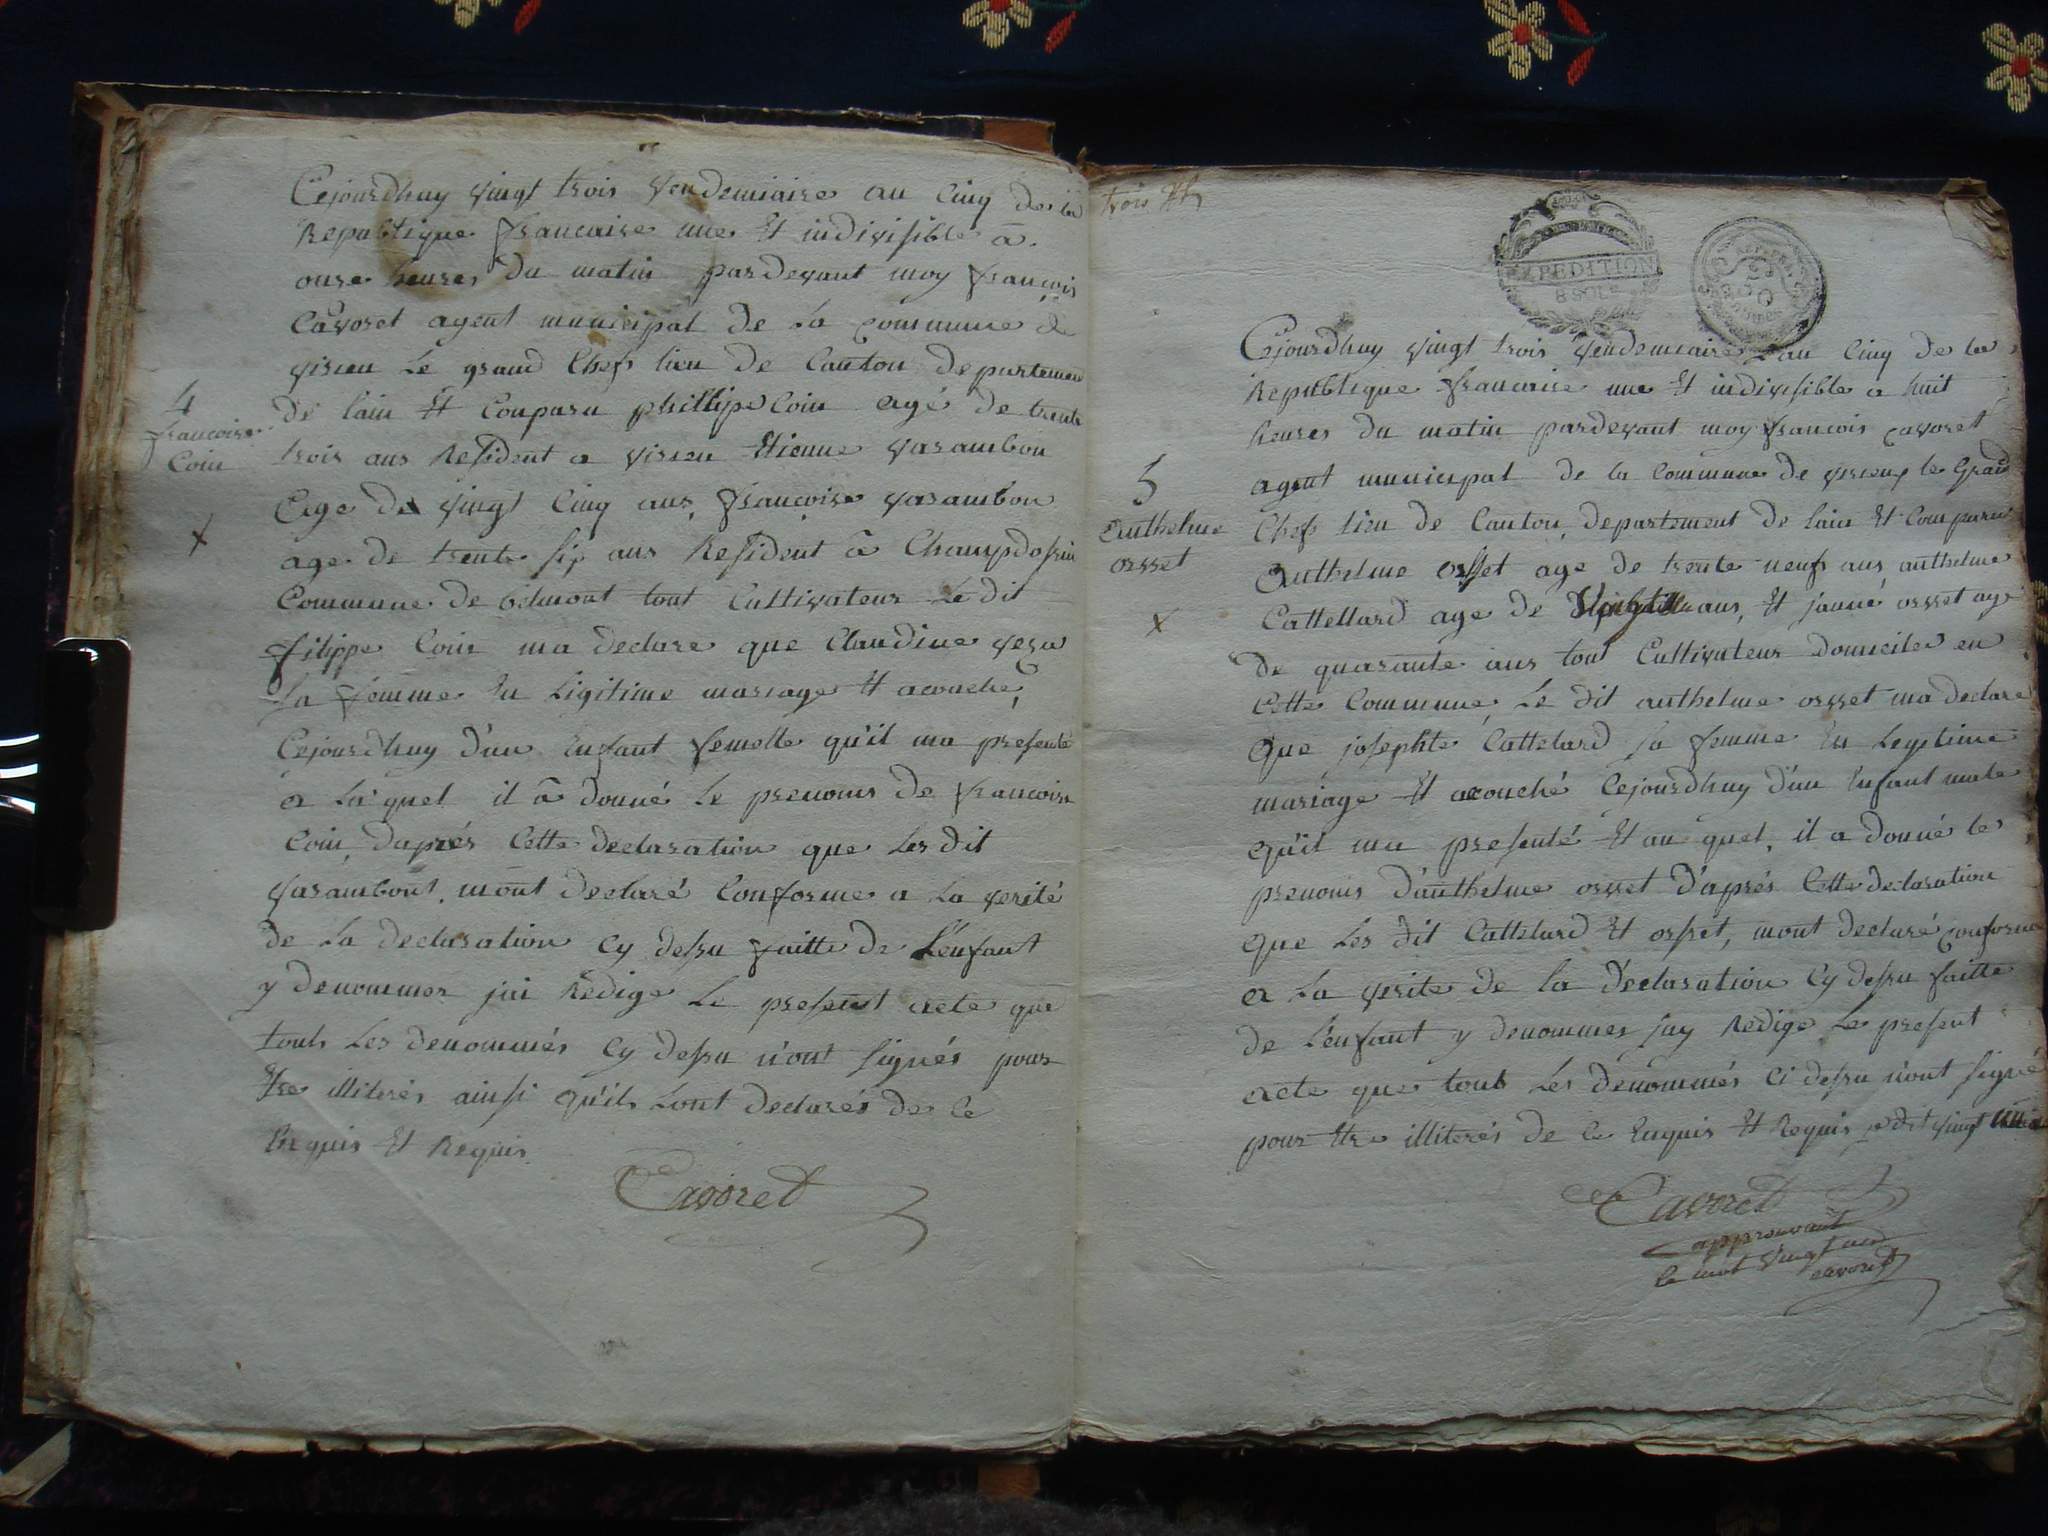 Cejourdhuy vingt trois vendemiaire an Cinq de la
Republique francaise une Et indivisible a
onze heures du matin pardevant moy françois
Cavoret agent municipal de La Commune de
virieu Le grand Chef lieu de Canton departement
4
francoise
Coin
de lain Et Comparu phillipe Coin agé de trente
trois ans Resident a virieu Etienne varambon
Age de vingt Cinq ans, françoise varambon
age de trente six ans Resident a Champdossin
Commune de belmont tout Cultivateur Le dit
filippe Coin ma declare que Claudine
sa femme En Ligitime mariage Et acouché,
Cejourdhuy d'un Enfant femelle qu'il ma presenté
a La quel il â donné Le prenoms de francoise
Coin, daprés Cette declaration que Les dit
varambont mont declaré Conforme a La verité
de La declaration cy dessu faitte de L'enfant
y denommer jai Redige Le present acte que
touts Les denommés cy dessu n'ont signés pour
Etre illiterés ainsi qu'ils Lont declarés de ce
Enquis Et Requis
Cavoret
trois
EXPEDITION
8 SOLS
Cejourdhuy vingt trois vendemiaire Lan Cinq de la
Republique francaise une Et indivisible a huit
heures du matin pardevant moy francois cavoret
5
Anthelme
orsset
agent municipal de la Commune de virieu le Grand
Chef lieu de Canton, departement de lain Et Comparu
Anthelme orsset age de trente neuf ans, anthelme
Cattellard age de ans, Et janne orsset age
de quarante ans tout Cultivateur domicilie en
Cette Commune, Le dit anthelme orsset ma declare
Que josephte Cattelard sa femme En Legitime
mariage Et acouché Cejourdhuy d'un Enfant male
Qu'il ma presenté Et au quel, il a donné le
prenoms d'anthelme orsset d'aprés Cette declaration
que Les dit Cattelard Et orsset, mont declaré conforme
a La verite de la declaration Cy dessu faitte
de L'enfant y denommer jay Redige Le present
acte que touts Les denommés ci dessu n'ont signé
pour Etre illiterés de ce Enquis Et Requis dit vingt un
Cavoret
approuvant
le mot vingt un
cavoret